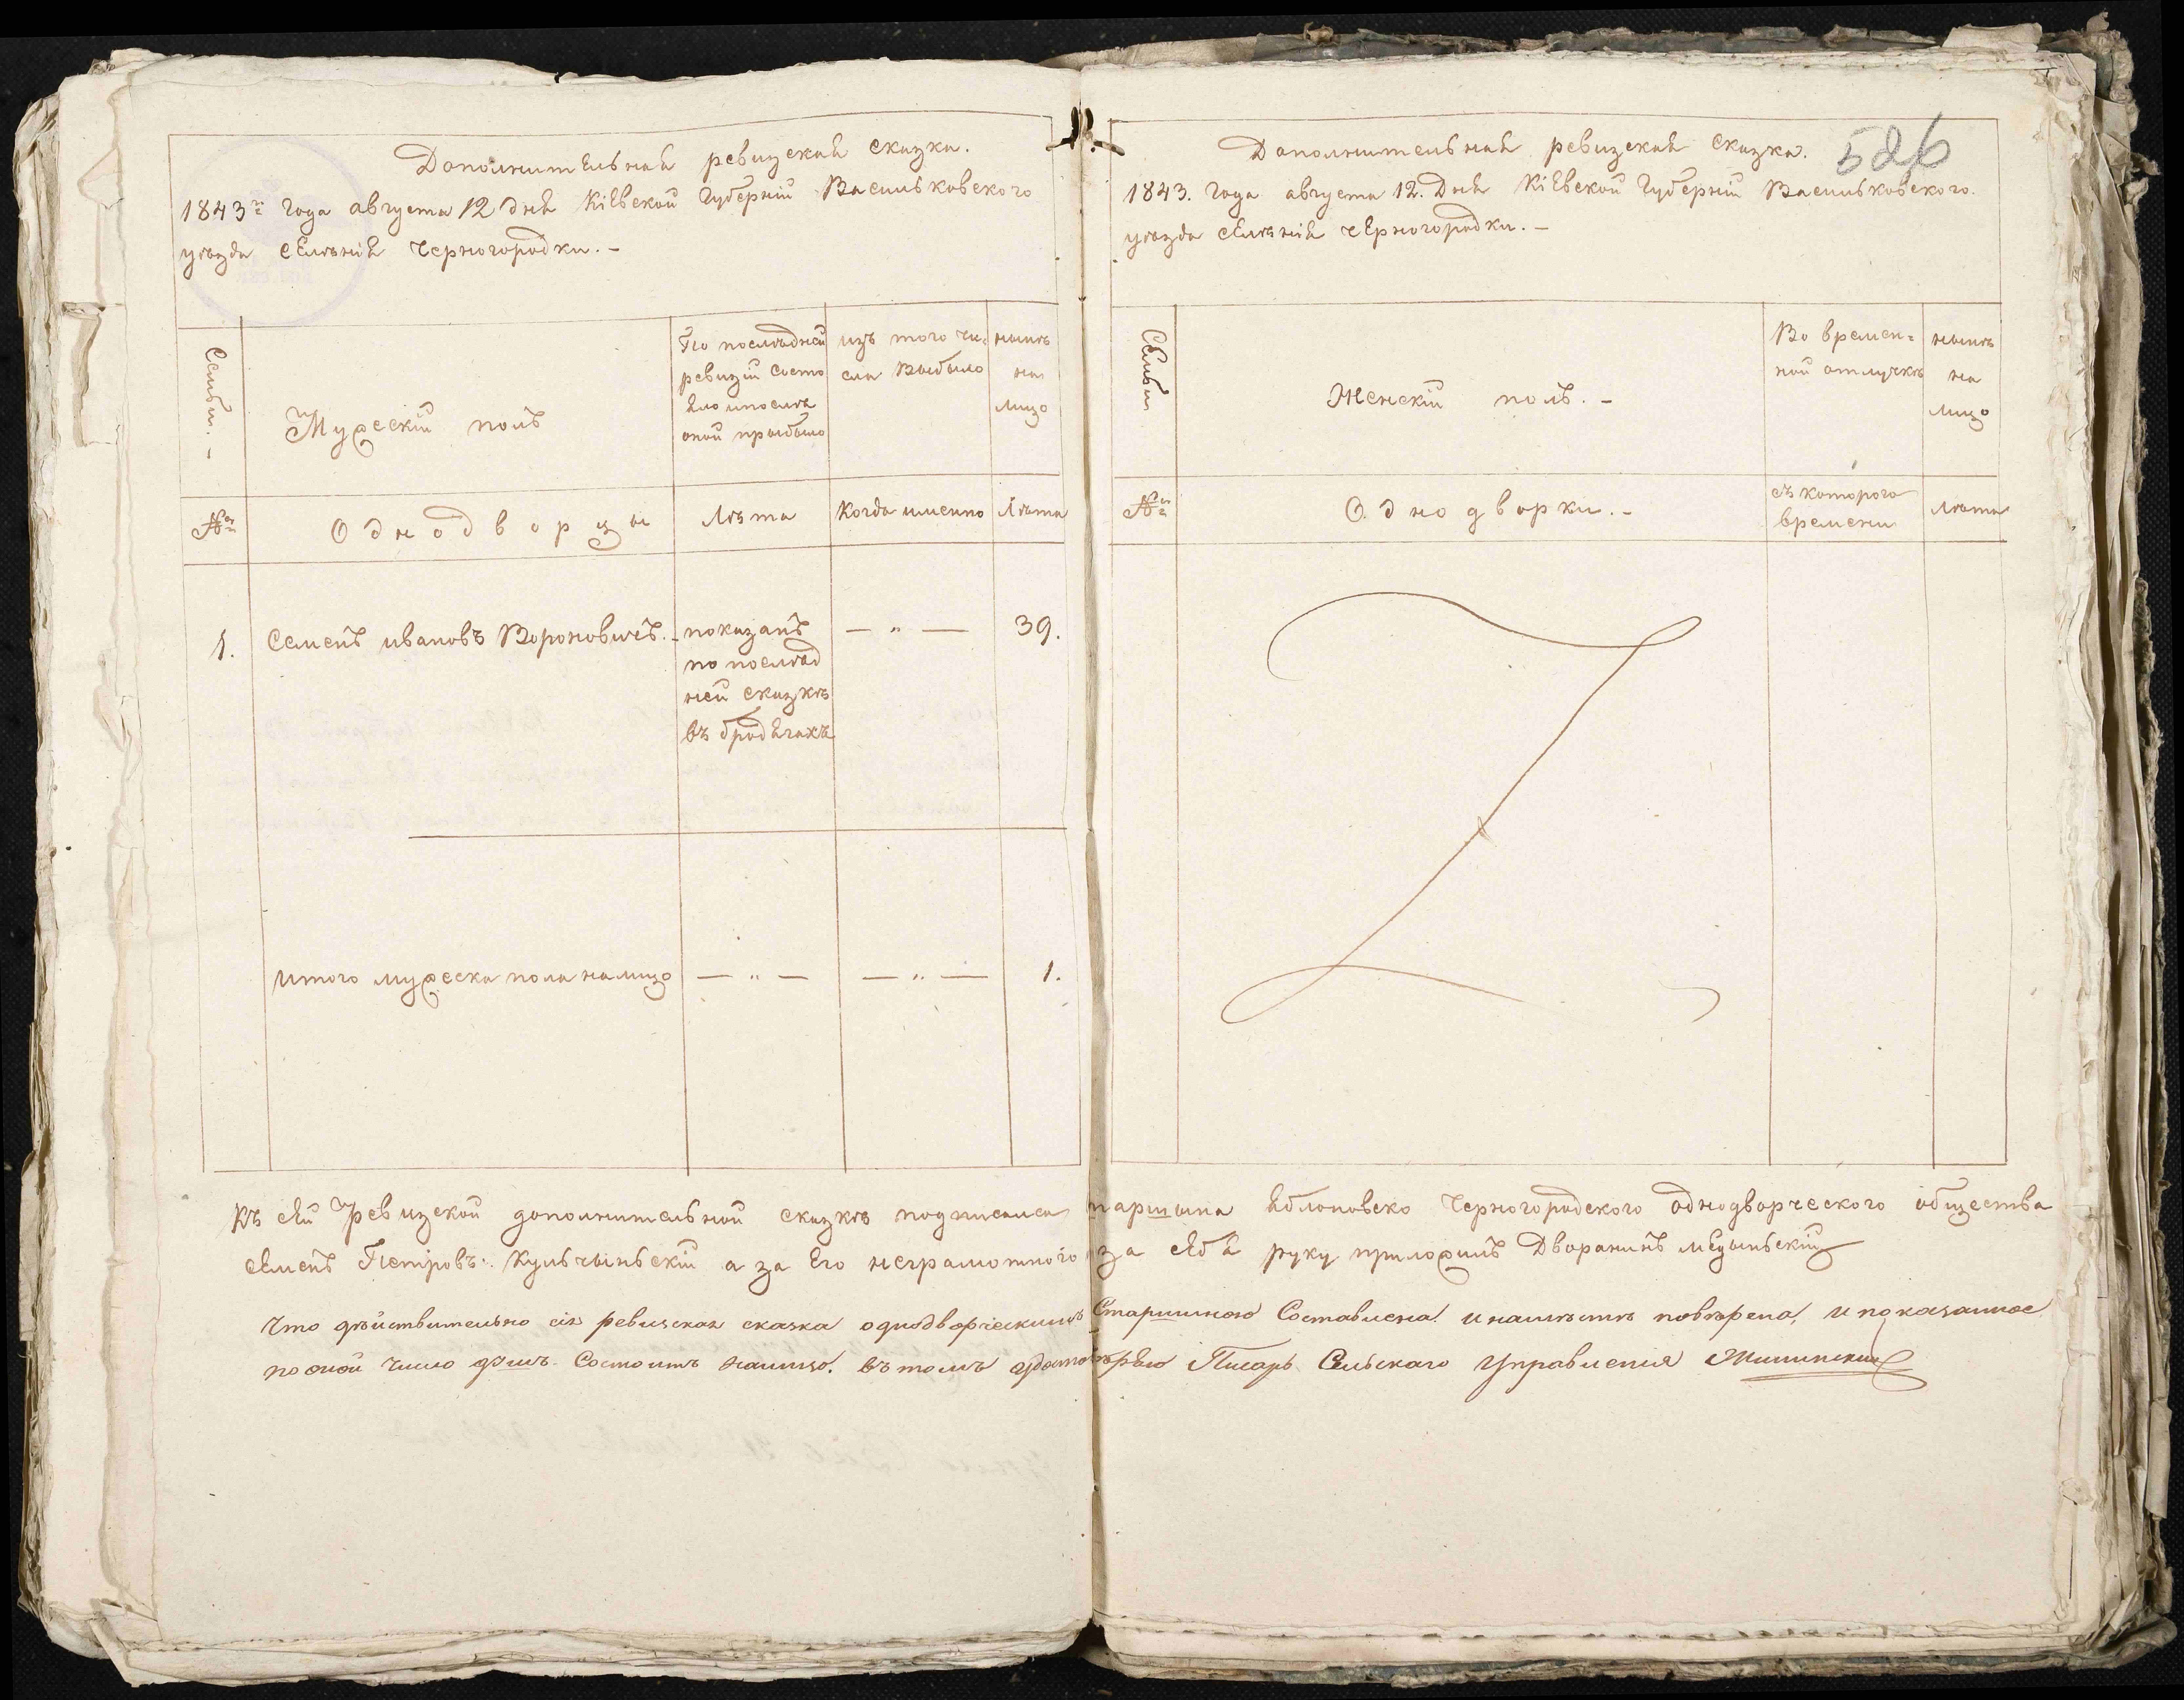 Дополнительная ревизская сказка.
1843го года августа 12 дня Кіевской Губерніи Васильковского
уѣзда селѣнія Черногородки. –
Семьи. –
Мужескій полъ
По послѣдней
ревизіи состо
яло и послѣ
оной прыбыло
изъ того чи-
сла выбыло
нынѣ
на
лицо
№
Однодворцы
Лѣта
Когда именно
Лѣта
1.
Семенъ ивановъ Вороновичъ. –
показанъ
по послѣд
ней сказкѣ
въ бродягахъ
— " —
39.
итого мужеска пола на лицо
— " —
— " —
1.
Дополнительная ревизская сказка.
526
1843. года августа 12. Дня Кіевской Губерніи Васильковского.
уѣзда селѣнія черногородки. –
Семьи
Женскій полъ. –
Во времен-
ной отлучкѣ
нынѣ
на
лицо
№
Однодворки. –
съ которого
времени
Лѣта
Къ сей ревизской дополнительной сказкѣ подписался таршына Яблоновско Черногородского однодворческого общества
семенъ Петровъ: Кульчыньскій а за его неграмотного за себя руку приложилъ Дворанинъ медыньскій
Что дѣйствительно сія ревизская сказка однодворческимъ Старшиною Составлена и на мѣстѣ повѣрена, и показанное
по оной число душъ Состоитъ налицо. въ томъ удостовѣряю Писарь Сельскаго Управленія